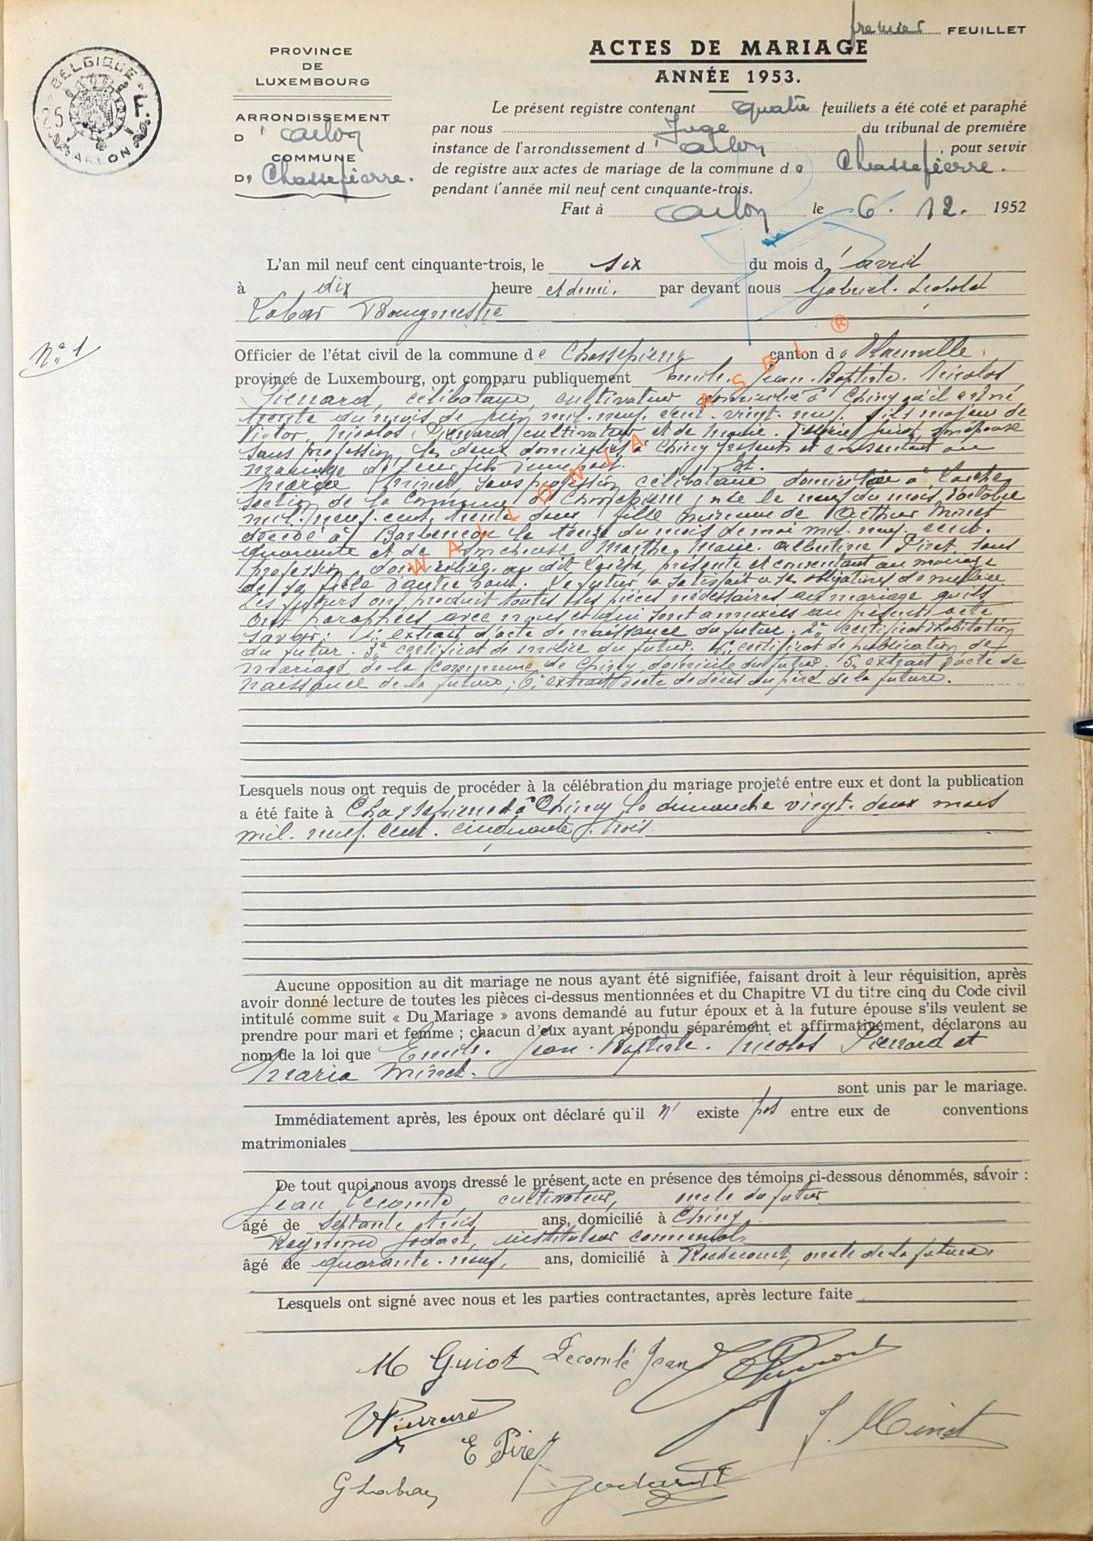 premier FEUILLET
ACTES DE MARIAGE
ANNÉE 1953.
PROVINCE
DE
LUXEMBOURG
ARRONDISSEMENT
D' Arlon
COMMUNE
De Chassepierre.
BELGIQUE
ARLON
Le présent registre contenant quatre feuillets a été coté et paraphé
par nous Juge du tribunal de première
instance de l'arrondissement d'Arlon, pour servir
de registre aux actes de mariage de la commune de Chassepierre.
pendant l'année mil neuf cent cinquante-trois.
Fait à Arlon le 6. 12. 1952
L'an mil neuf cent cinquante-trois, le six du mois d'avril
à dix heure et demi, par devant nous Gabriel. Léopold
Labar Bourgmestre
N° 1
Officier de l'état civil de la commune de Chassepierre canton de Florenville.
province de Luxembourg, ont comparu publiquement Emile. Jean. Baptiste. Nicolas
Pierrard, célibataire, cultivateur domicilié à Chiny qu'il est né
trente du mois de mil. neuf. cent. vingt. neuf. fils majeur de
Victor. Nicolas. Pierrard cultivateur et de Marie. Guiot, son épouse
sans profession, les deux domiciliés à Chiny présents et consentant au
mariage de leur fils d'une part. Et.
Maria Minet, sans profession célibataire domiciliée à Laiche,
section de la commune de Chassepierre, née le neuf du mois d'octobre
mil. neuf. cent. trente deux fille mineure de Arthur Minet
décédé à Barbençon le treize du mois de mai mil. neuf. cent.
quarante et de Marthe. Marie. Albertine. Piret. sans
profession, domiciliée au dit Laiche, présente et consentant au mariage
de sa fille d'autre part. Le futur a satisfait à ses obligations de milice
Les futurs ont produit toutes les pièces nécessaires au mariage qu'ils
ont paraphées avec nous et qui sont annexées au présent acte
savoir: 1° extrait d'acte de naissance du futur, 2° certificat d'habitation
du futur. 3° certificat de milice du futur. 4° certificat de publication de
mariage de la commune de Chiny domicile du futur. 5° extrait d'acte de
naissance de la future; 6° extrait d'acte de décès du père de la future.
Lesquels nous ont requis de procéder à la célébration du mariage projeté entre eux et dont la publication
a été faite à Chassepierre et à Chiny le dimanche vingt. deux mars
mil. neuf. cent. cinquante. trois
Aucune opposition au dit mariage ne nous ayant été signifiée, faisant droit à leur réquisition, après
avoir donné lecture de toutes les pièces ci-dessus mentionnées et du Chapitre VI du titre cinq du Code civil
intitulé comme suit « Du Mariage » avons demandé au futur époux et à la future épouse s'ils veulent se
prendre pour mari et femme ; chacun d'eux ayant répondu séparément et affirmativement, déclarons au
nom de la loi que Emile. Jean. Baptiste. Nicolas Pierrard et
Maria Minet.
sont unis par le mariage.
Immédiatement après, les époux ont déclaré qu'il n' existe pas entre eux de conventions
matrimoniales
De tout quoi nous avons dressé le présent acte en présence des témoins ci-dessous dénommés, savoir :
Jean Lecomte, cultivateur, oncle du futur
âgé de septante trois ans, domicilié à Chiny.
Raymond Jodart, instituteur communal
âgé de quarante-neuf, ans, domicilié à Rochecourt, oncle de la future
Lesquels ont signé avec nous et les parties contractantes, après lecture faite
M Guiot Lecomte Jean
Pierrard
E Piret
J. Minet
G Labar
WALLONIA ASBL ®